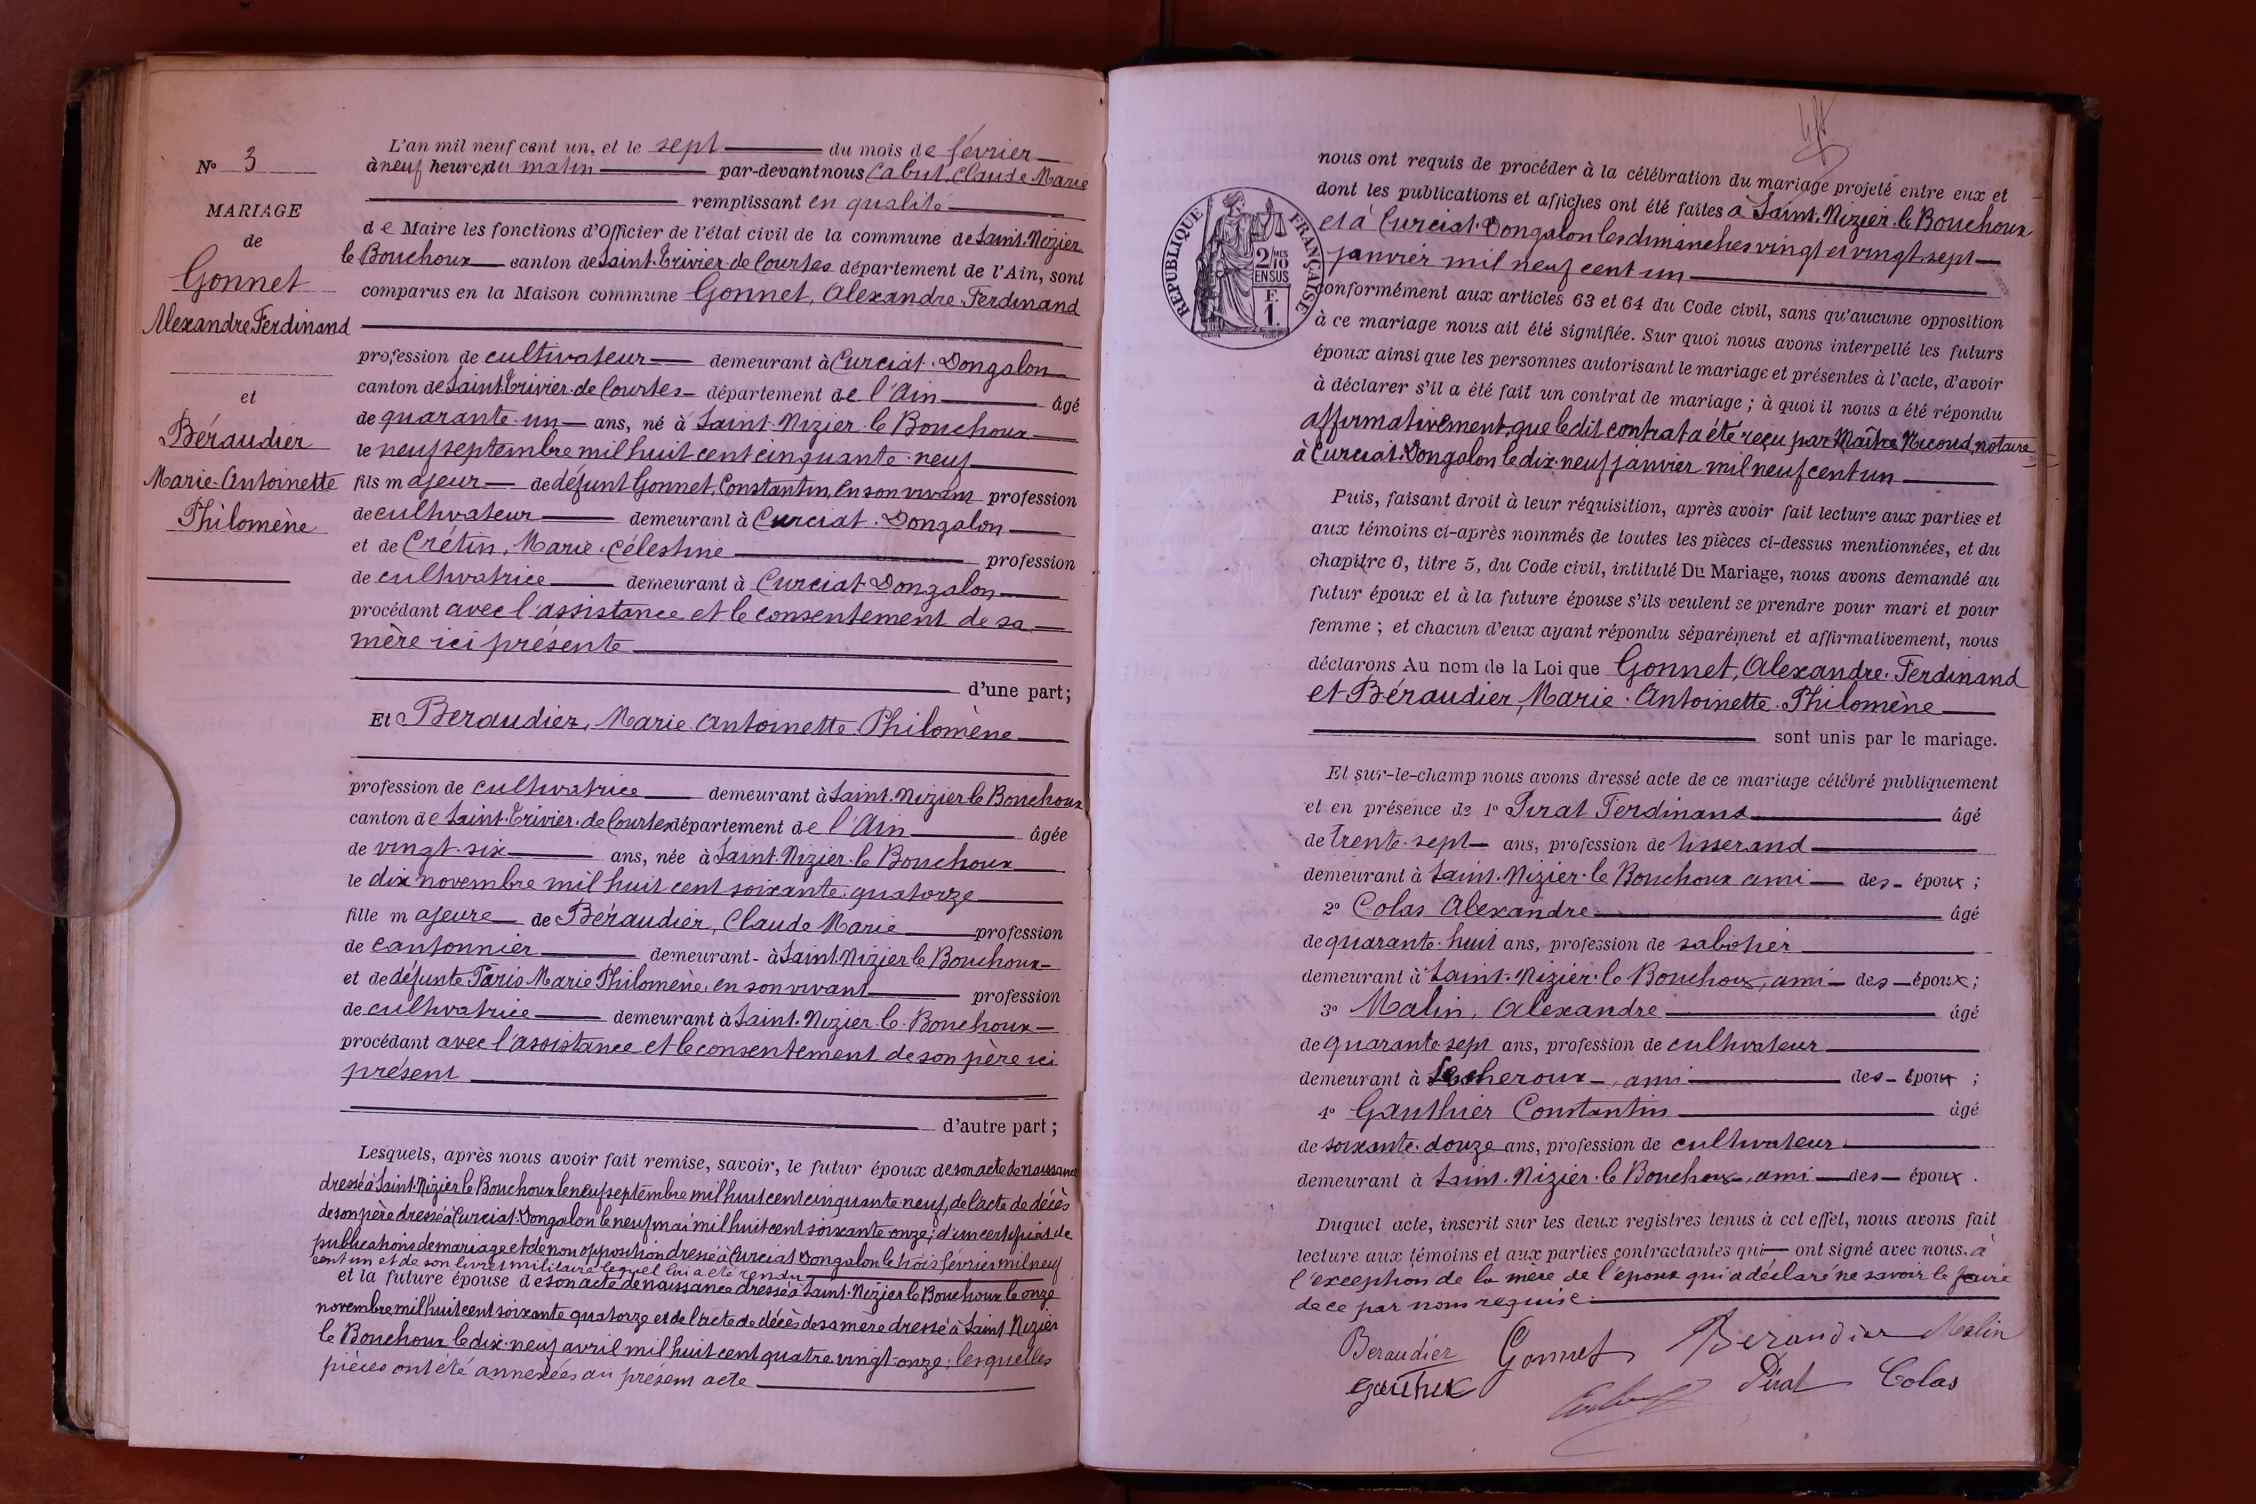 N° 3
MARIAGE
de
Gonnet
Alexandre Ferdinand
et
Béraudier
Marie-Antoinette
Philomène
L'an mil neuf cent un, et le sept du mois de février
à neuf heures du matin par-devant nous Cabut, Claude Marie
remplissant en qualité
de Maire les fonctions d'Officier de l'état civil de la commune de Saint-Nizier
le Bouchoux canton de Saint-Trivier-de-Courtes département de l'Ain, sont
comparus en la Maison commune Gonnet, Alexandre-Ferdinand
profession de cultivateur demeurant à Curciat-Dongalon
canton de Saint Trivier-de-Courtes département de l'Ain âgé
de quarante-un ans, né à Saint-Nizier-le Bouchoux
le neuf septembre mil huit cent cinquante-neuf
fils majeur de défunt Gonnet, Constantin, en son vivant profession
de cultivateur demeurant à Curciat-Dongalon
et de Crétin, Marie-Célestine profession
de cultivatrice demeurant à Curciat-Dongalon
procédant avec l'assistance et le consentement de sa
mère ici présente
d'une part;
Et Beraudier, Marie Antoinette Philomène
profession de cultivatrice demeurant à Saint-Nizier le Bouchoux
canton de Saint-Trivier-de-Courtes département de l'Ain âgée
de vingt-six ans, née à Saint-Nizier-le Bouchoux
le dix novembre mil huit cent soixante-quatorze
fille majeure de Béraudier, Claude Marie profession
de cantonnier demeurant à Saint-Nizier le Bouchoux
et de défunte Paris Marie Philomène, en son vivant profession
de cultivatrice demeurant à Saint-Nizier-le-Bouchoux
procédant avec l'assistance et le consentement de son père ici
présent
d'autre part;
Lesquels, après nous avoir fait remise, savoir, le futur époux de son acte de naissance
dressé à Saint-Nizier le Bouchoux le neuf septembre mil huit cent cinquante-neuf, de l'acte de décès
de son père dressé à Curciat-Dongalon le neuf mai mil huit cent soixante onze; d'un certificat de
publications de mariage et de non opposition dressé à Curciat Dongalon le trois février mil neuf
cent un et de son livret militaire lequel lui a été rendu
et la future épouse de son acte de naissance dressé à Saint-Nizier le Bouchoux le onze
novembre mil huit cent soixante quatorze et de l'acte de décès de sa mère dressé à Saint Nizier
le Bouchoux le dix-neuf avril mil huit cent quatre vingt-onze; lesquelles
pièces ont été annexées au présent acte
RÉPUBLIQUE FRANÇAISE
2/10 MES
EN SUS
F.
1.
nous ont requis de procéder à la célébration du mariage projeté entre eux et
dont les publications et affiches ont été faites à Saint-Nizier-le Bouchoux
et à Curciat-Dongalon les dimanches vingt et vingt sept
janvier mil neuf cent un
conformément aux articles 63 et 64 du Code civil, sans qu'aucune opposition
à ce mariage nous ait été signifiée. Sur quoi nous avons interpellé les futurs
époux ainsi que les personnes autorisant le mariage et présentes à l'acte, d'avoir
à déclarer s'il a été fait un contrat de mariage; à quoi il nous a été répondu
affirmativement, que le dit contrat a été reçu par Maître Nicoud, notaire
à Curciat-Dongalon le dix-neuf janvier mil neuf cent un
Puis, faisant droit à leur réquisition, après avoir fait lecture aux parties et
aux témoins ci-après nommés de toutes les pièces ci-dessus mentionnées, et du
chapitre 6, titre 5, du Code civil, intitulé Du Mariage, nous avons demandé au
futur époux et à la future épouse s'ils veulent se prendre pour mari et pour
femme; et chacun d'eux ayant répondu séparément et affirmativement, nous
déclarons Au nom de la Loi que Gonnet, Alexandre-Ferdinand
et Béraudier, Marie-Antoinette-Philomène
sont unis par le mariage.
Et sur-le-champ nous avons dressé acte de ce mariage célébré publiquement
et en présence de 1° Pirat Ferdinand âgé
de trente-sept ans, profession de tisserand
demeurant à Saint-Nizier-le Bouchoux ami des époux;
2° Colas Alexandre âgé
de quarante-huit ans, profession de sabotier
demeurant à Saint-Nizier-le Bouchoux, ami des époux;
3° Malin, Alexandre âgé
de quarante sept ans, profession de cultivateur
demeurant à Lescheroux, ami des époux;
4° Gauthier Constantin âgé
de soixante-douze ans, profession de cultivateur
demeurant à Saint-Nizier-le Bouchoux, ami des époux.
Duquel acte, inscrit sur les deux registres tenus à cet effet, nous avons fait
lecture aux témoins et aux parties contractantes qui ont signé avec nous. à
l'exception de la mère de l'époux qui a déclaré ne savoir le faire
de ce par nous requise.
Beraudier Gonnet Beraudier Malin
Pirat Colas